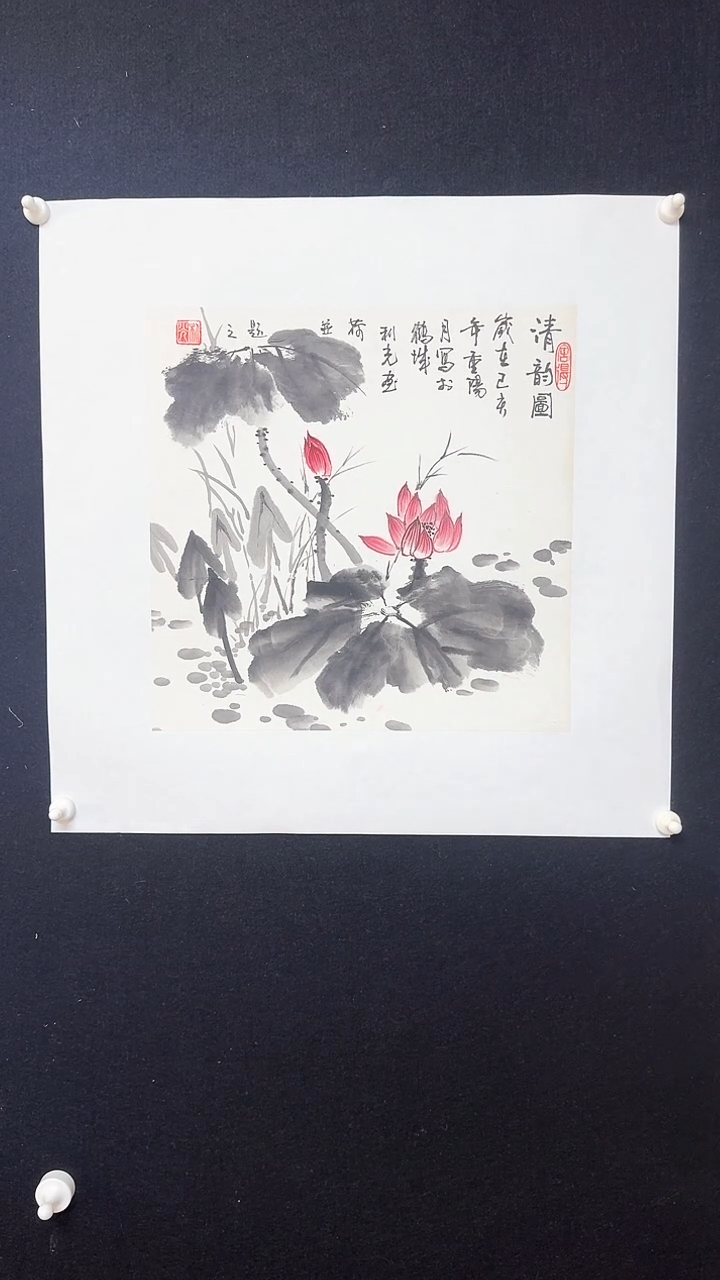 清韵圖
歲在己亥
年重陽
月寫於
鶴城
利畫
荷
並
題
之